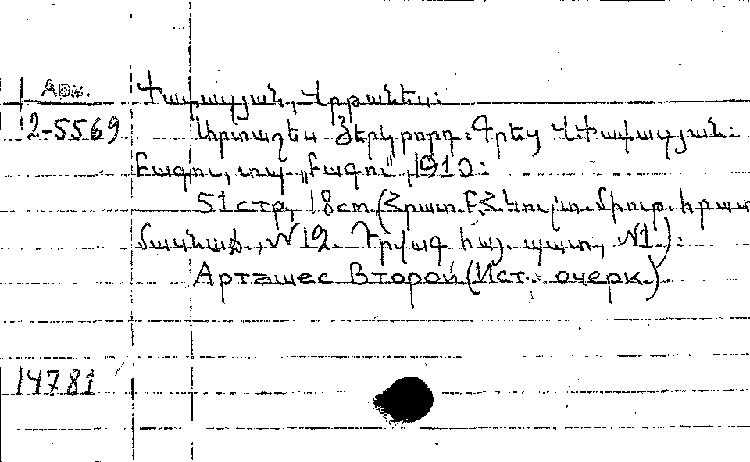 Арм.
2-5569
Փափազյան, Վրթանես:
Արտաշես Երկրորդ: Գրեց Վ. Փափազյան:
Բագու, տպ. „Բագու", 1910:
51 стр, 18 см. (Հրատ. Բ. Հ. Կուլտ. միութ. հրատ
մասնաճ., №12. Դրվագ հայ. պատ., №1.):
Арташес Второй (Ист. очерк.)
14781